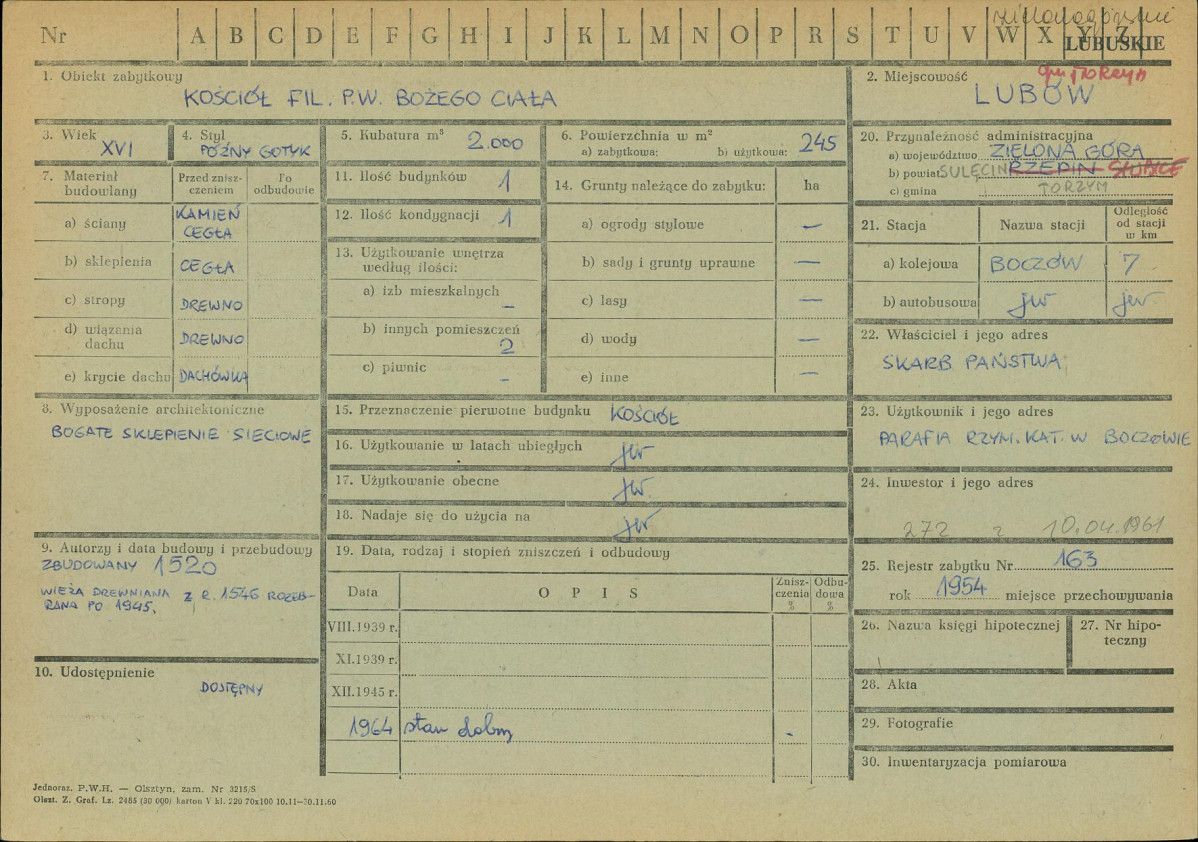 zielonogórskie
Nr A B C D E F G H I J K L M N O P R S T U V W X Y Z
LUBUSKIE
1. Obiekt zabytkowy
KOŚCIÓŁ FIL. P.W. BOŻEGO CIAŁA
2. Miejscowość
gm. TORZYM
LUBÓW
3. Wiek
XVI
4. Styl
PÓŹNY GOTYK
5. Kubatura m³
2.000
6. Powierzchnia w m²
a) zabytkowa: b) użytkowa: 245
20. Przynależność administracyjna
a) województwo ZIELONA GÓRA
b) powiat SULĘCIN RZEPIN SŁUBICE
c) gmina TORZYM
7. Materiał budowlany
Przed zniszczeniem
Po odbudowie
a) ściany KAMIEŃ CEGŁA
b) sklepienia CEGŁA
c) stropy DREWNO
d) wiązania dachu DREWNO
e) krycie dachu DACHÓWKA
11. Ilość budynków 1
12. Ilość kondygnacji 1
13. Użytkowanie wnętrza według ilości:
a) izb mieszkalnych –
b) innych pomieszczeń 2
c) piwnic –
14. Grunty należące do zabytku: ha
a) ogrody stylowe —
b) sady i grunty uprawne —
c) lasy —
d) wody —
e) inne —
21. Stacja Nazwa stacji Odległość od stacji w km
a) kolejowa BOCZÓW 7
b) autobusowa jw jw
22. Właściciel i jego adres
SKARB PAŃSTWA
8. Wyposażenie architektoniczne
BOGATE SKLEPIENIE SIECIOWE
15. Przeznaczenie pierwotne budynku KOŚCIÓŁ
16. Użytkowanie w latach ubiegłych jw
17. Użytkowanie obecne jw.
18. Nadaje się do użycia na jw
23. Użytkownik i jego adres
PARAFIA RZYM. KAT. W BOCZOWIE
24. Inwestor i jego adres
272 z 10.04.1961
9. Autorzy i data budowy i przebudowy
ZBUDOWANY 1520
WIEŻA DREWNIANA Z R. 1546 ROZEB-
RANA PO 1945.
19. Data, rodzaj i stopień zniszczeń i odbudowy
Data OPIS Zniszczenia % Odbudowa %
VIII.1939 r.
XI.1939 r.
XII.1945 r.
1964 stan dobry -
25. Rejestr zabytku Nr 163
rok 1954 miejsce przechowywania
26. Nazwa księgi hipotecznej
27. Nr hipoteczny
10. Udostępnienie
DOSTĘPNY
28. Akta
29. Fotografie
30. Inwentaryzacja pomiarowa
Jednoraz. P.W.H. — Olsztyn, zam. Nr 3215/S
Olszt. Z. Graf. Lz. 2485 (30 000) karton V kl. 220 70x100 10.11—30.11.60